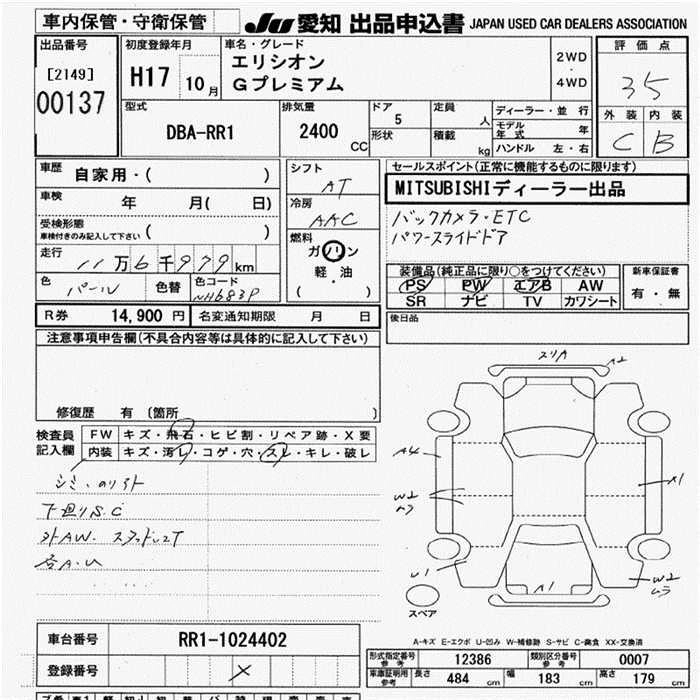 車内保管・守衛保管
JU 愛知 出品申込書 JAPAN USED CAR DEALERS ASSOCIATION
出品番号
[2149]
00137
初度登録年月
H17 10月
車名・グレード
エリシオン
Gプレミアム
2WD
・
4WD
評価点
35
外装 内装
C B
型式
DBA-RR1
排気量
2400 CC
ドア
5
形状
定員
人
積載
kg
ディーラー・並行
モデル年式 年
ハンドル 左・右
車歴
自家用・( )
車検
年 月( 日)
受検形態
車検付きのみ記入して下さい ( )
走行
11万6千979km
色
パール
色替
色コード
NH683P
シフト
AT
冷房
AAC
燃料
ガソリン
軽・油
( )
セールスポイント(正常に機能するものに限ります)
MITSUBISHIディーラー出品
バックカメラ・ETC
パワースライドドア
装備品(純正品に限り○をつけてください)
PS PW エアB AW
SR ナビ TV カワシート
新車保証書
有・無
R券 14,900 円
名変通知期限 月 日
後日品
注意事項申告欄(不具合内容等は具体的に記入して下さい)
修復歴 有 〔箇所 〕
検査員
記入欄
FW キズ・飛石・ヒビ割・リペア跡・X要
内装 キズ・汚レ・コゲ・穴・スレ・キレ・破レ
シミ・のリト
下廻りS.C
外AW. スタッドレスT
各A.U
スリA
A2
A4
W2
ムラ
A1
U1
A1
W2
ムラ
スペア
A-キズ E-エクボ U-凹み W-補修跡 S-サビ C-腐食 XX-交換済
車台番号 RR1-1024402
登録番号 X
形式指定番号
参考
12386
類別区分番号
参考
0007
車庫証明用
参考
長さ 484 cm
幅 183 cm
高さ 179 cm